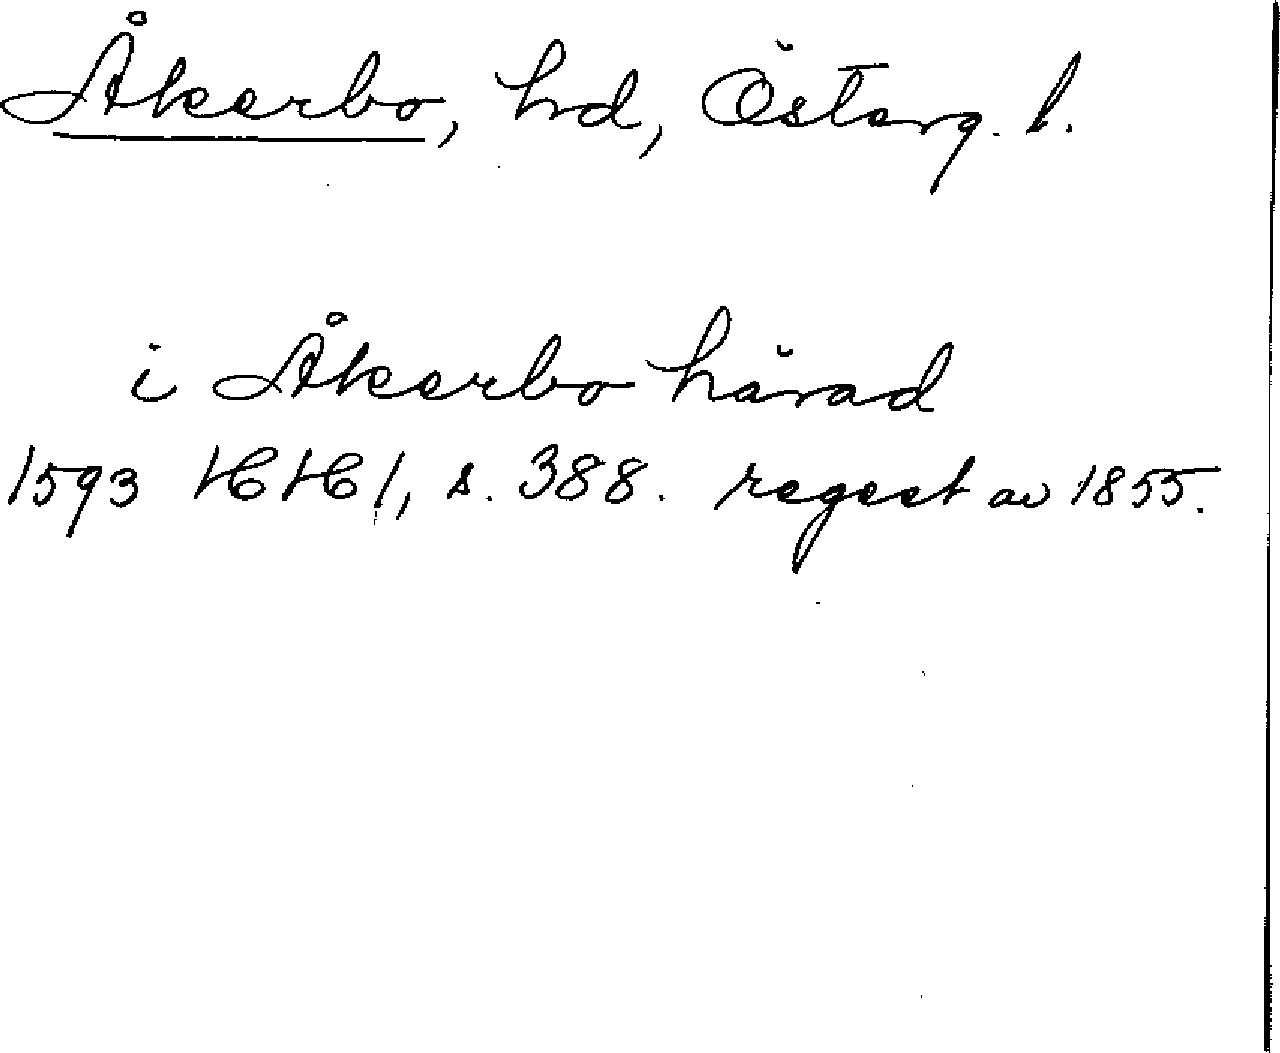 Åkerbo, hd, Österg. l.
i Åkerbo härad
1593 HH 1, s. 388. regest av 1855.